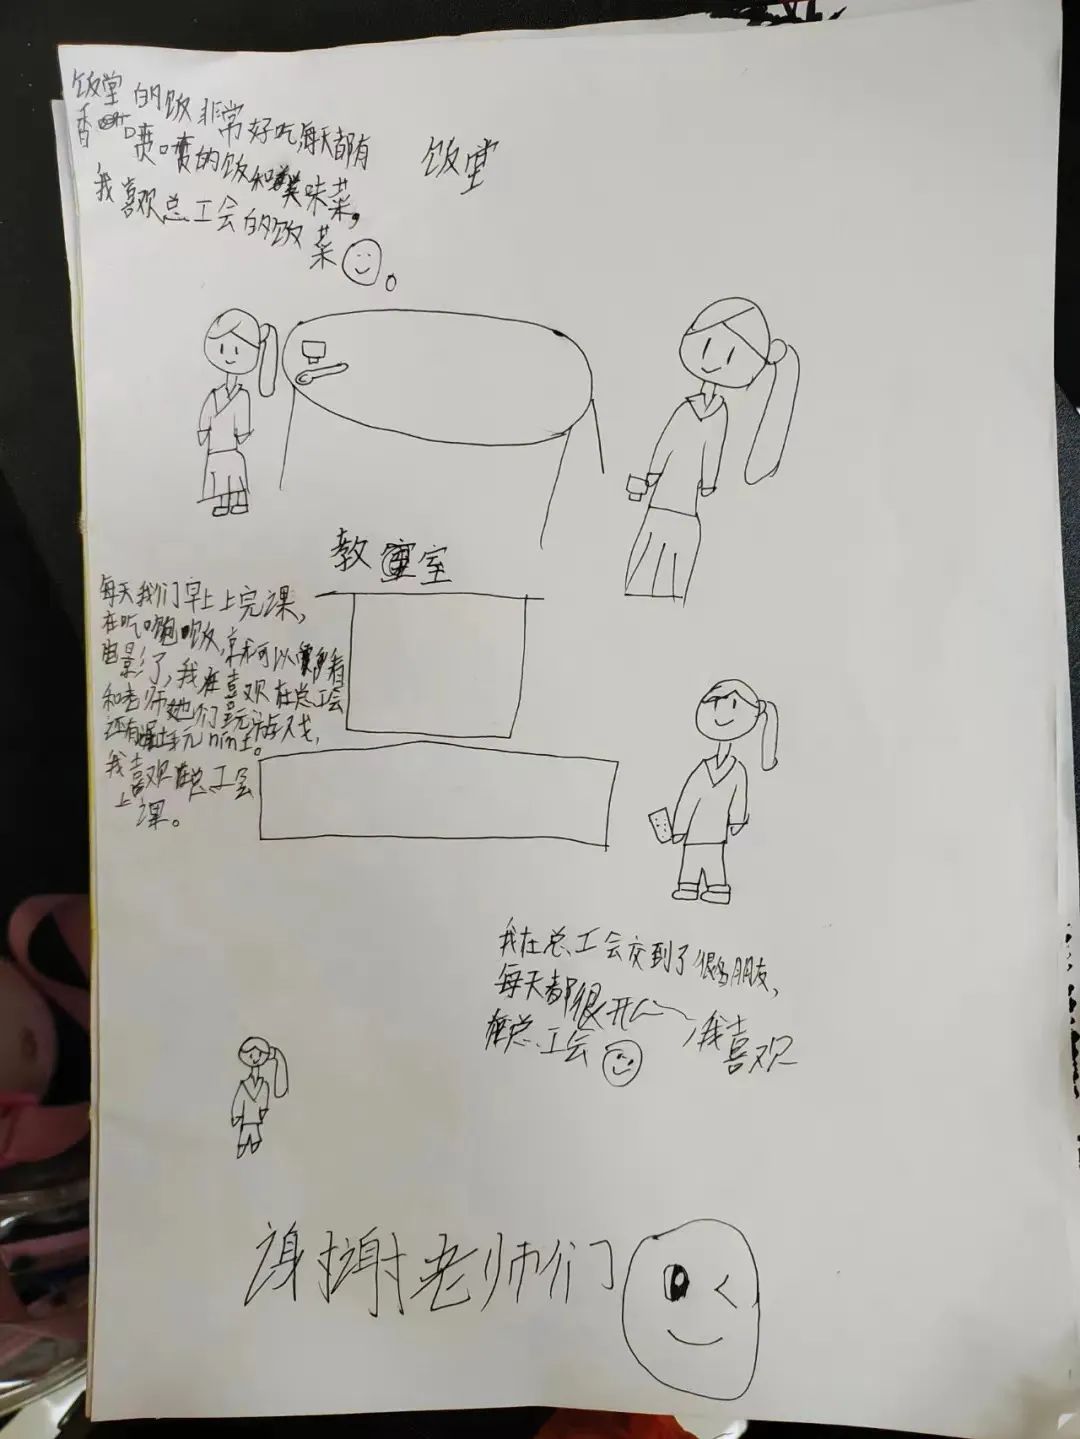 饭堂的饭非常好吃每天都有
香喷喷的饭和美味菜，
我喜欢总工会的饭菜。
饭堂
教室
每天我们早上上完课，
在吃饱饭，就可以看
电影了，我在喜欢在总工会
和老师她们玩游戏，
还有玩nint。
我喜欢在总工会
上课。
我在总工会交到了很多朋友，
每天都很开心，我喜欢
在总工会
谢谢老师们